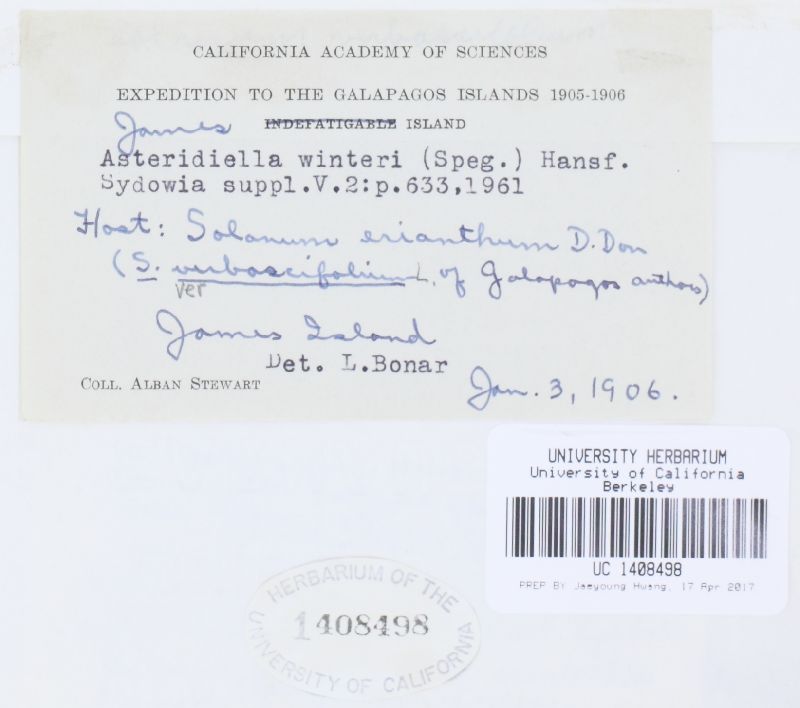 CALIFORNIA ACADEMY OF SCIENCES
EXPEDITION TO THE GALAPAGOS ISLANDS 1905-1906
James INDEFATIGABLE ISLAND
Asteridiella winteri (Speg.) Hansf.
Sydowia suppl.V.2:p.633,1961
Host: Solanum erianthum D. Don
(S. verbascifolium L. of Galapagos authors)
ver
James Island
Det. L.Bonar
COLL. ALBAN STEWART
Jan. 3, 1906.
UNIVERSITY HERBARIUM
University of California
Berkeley
UC 1408498
PREP BY Jaeyoung Hwang, 17 Apr 2017
HERBARIUM OF THE
1408498
UNIVERSITY OF CALIFORNIA